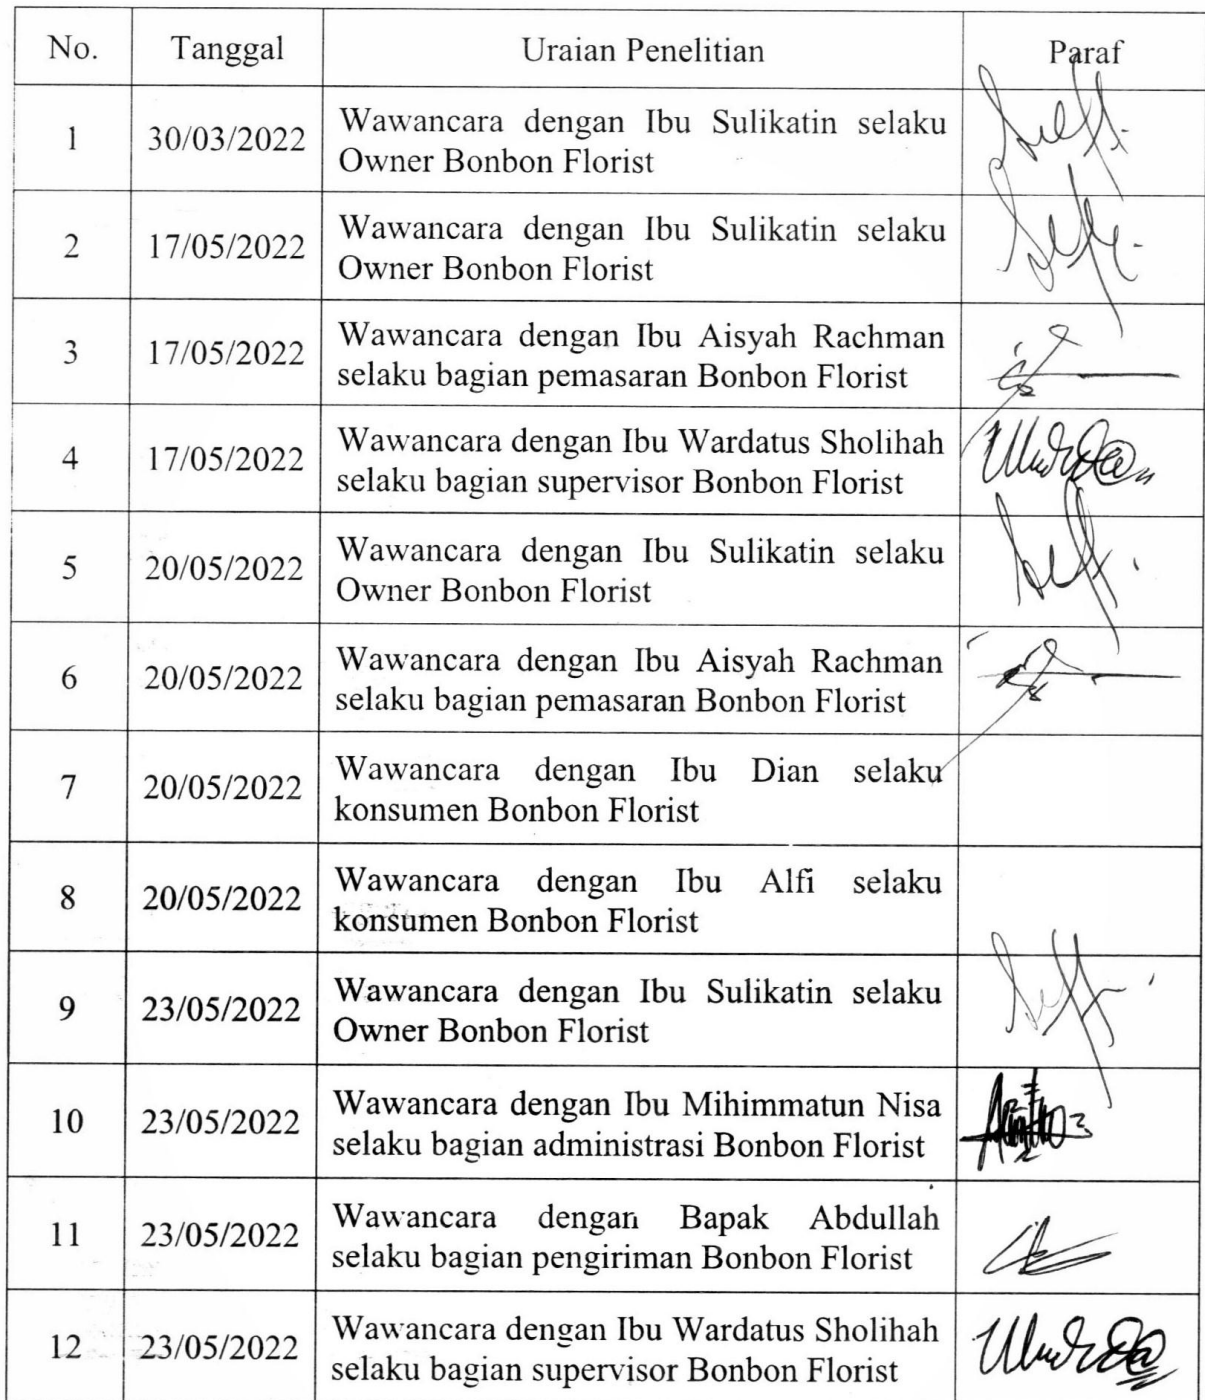 No. Tanggal Uraian Penelitian Paraf
1 30/03/2022 Wawancara dengan Ibu Sulikatin selaku
Owner Bonbon Florist
2 17/05/2022 Wawancara dengan Ibu Sulikatin selaku
Owner Bonbon Florist
3 17/05/2022 Wawancara dengan Ibu Aisyah Rachman
selaku bagian pemasaran Bonbon Florist
4 17/05/2022 Wawancara dengan Ibu Wardatus Sholihah
selaku bagian supervisor Bonbon Florist
5 20/05/2022 Wawancara dengan Ibu Sulikatin selaku
Owner Bonbon Florist
6 20/05/2022 Wawancara dengan Ibu Aisyah Rachman
selaku bagian pemasaran Bonbon Florist
7 20/05/2022 Wawancara dengan Ibu Dian selaku
konsumen Bonbon Florist
8 20/05/2022 Wawancara dengan Ibu Alfi selaku
konsumen Bonbon Florist
9 23/05/2022 Wawancara dengan Ibu Sulikatin selaku
Owner Bonbon Florist
10 23/05/2022 Wawancara dengan Ibu Mihimmatun Nisa
selaku bagian administrasi Bonbon Florist
11 23/05/2022 Wawancara dengan Bapak Abdullah
selaku bagian pengiriman Bonbon Florist
12 23/05/2022 Wawancara dengan Ibu Wardatus Sholihah
selaku bagian supervisor Bonbon Florist